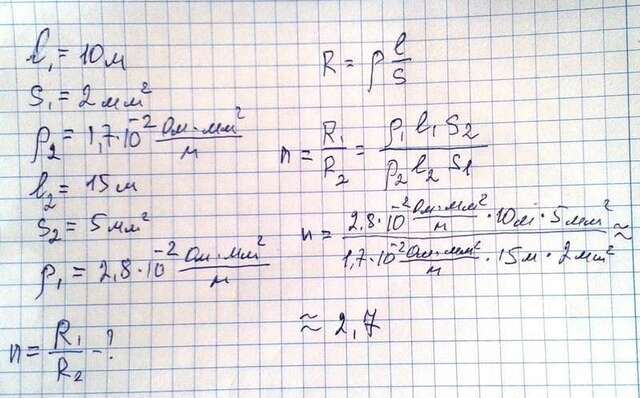 l₁ = 10 м
S₁ = 2 мм²
ρ₂ = 1,7·10⁻² Ом·мм²/м
l₂ = 15 м
S₂ = 5 мм²
ρ₁ = 2,8·10⁻² Ом·мм²/м
n = R₁/R₂ - ?
R = ρ l/S
n = R₁/R₂ = ρ₁ l₁ S₂ / ρ₂ l₂ S₁
n = 2,8·10⁻² Ом·мм²/м · 10 м · 5 мм² / 1,7·10⁻² Ом·мм²/м · 15 м · 2 мм² ≈
≈ 2,7